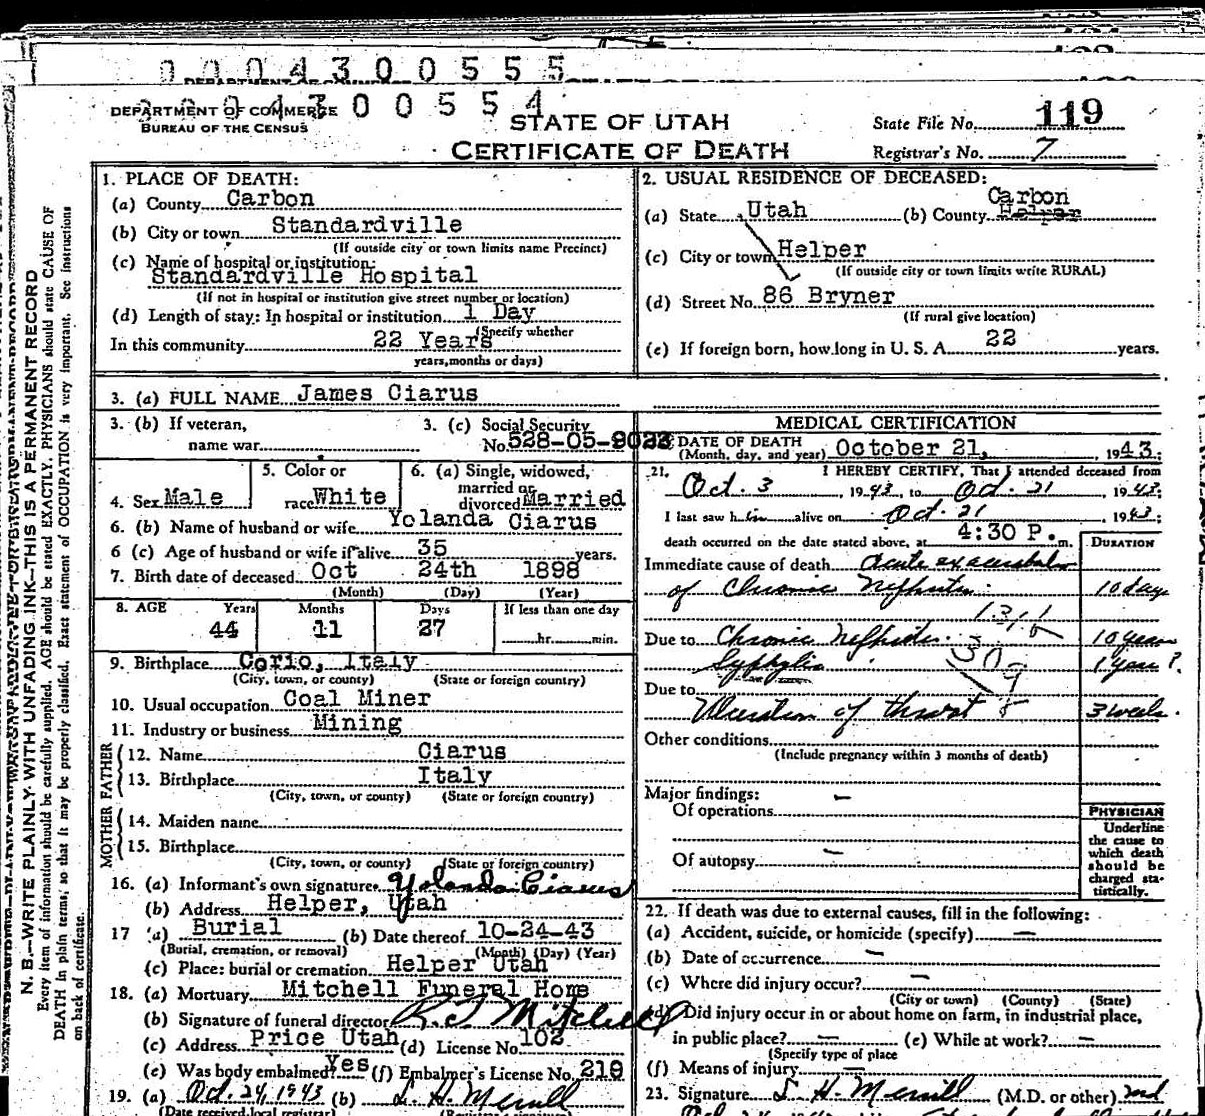 0 0 0 4 3 0 0 5 5 5
0 0 0 4 3 0 0 5 5 4
DEPARTMENT OF COMMERCE
BUREAU OF THE CENSUS
STATE OF UTAH
CERTIFICATE OF DEATH
State File No. 119
Registrar's No. 7
N. B.—WRITE PLAINLY WITH UNFADING INK—THIS IS A PERMANENT RECORD
Every item of information should be carefully supplied. AGE should be stated EXACTLY. PHYSICIANS should state CAUSE OF
DEATH in plain terms, so that it may be properly classified. Exact statement of OCCUPATION is very important. See instructions
on back of certificate.
1. PLACE OF DEATH:
(a) County Carbon
(b) City or town Standardville
(If outside city or town limits name Precinct)
(c) Name of hospital or institution:
Standardville Hospital
(If not in hospital or institution give street number or location)
(d) Length of stay: In hospital or institution 1 Day
(Specify whether
In this community 22 Years
years, months or days)
2. USUAL RESIDENCE OF DECEASED:
Carbon
(a) State Utah (b) County Helper
(c) City or town Helper
(If outside city or town limits write RURAL)
(d) Street No. 86 Bryner
(If rural give location)
(e) If foreign born, how long in U. S. A. 22 years.
3. (a) FULL NAME James Ciarus
3. (b) If veteran,
name war
3. (c) Social Security
No. 528-05-9023
4. Sex Male
5. Color or
race White
6. (a) Single, widowed,
married or
divorced Married
6. (b) Name of husband or wife Yolanda Ciarus
6 (c) Age of husband or wife if alive 35 years.
7. Birth date of deceased Oct 24th 1898
(Month) (Day) (Year)
8. AGE Years Months Days If less than one day
44 11 27 hr. min.
9. Birthplace Corio, Italy
(City, town, or county) (State or foreign country)
10. Usual occupation Coal Miner
11. Industry or business Mining
FATHER
12. Name Ciarus
13. Birthplace Italy
(City, town, or county) (State or foreign country)
MOTHER
14. Maiden name
15. Birthplace
(City, town, or county) (State or foreign country)
16. (a) Informant's own signature Yolanda Ciarus
(b) Address Helper, Utah
17 (a) Burial (b) Date thereof 10-24-43
(Burial, cremation, or removal) (Month) (Day) (Year)
(c) Place: burial or cremation Helper Utah
18. (a) Mortuary Mitchell Funeral Home
(b) Signature of funeral director R. T. Mitchell
(c) Address Price Utah (d) License No. 102
(e) Was body embalmed? Yes (f) Embalmer's License No. 219
19. (a) Oct. 24, 1943 (b) L. H. Merrill
(Date received local registrar)
MEDICAL CERTIFICATION
DATE OF DEATH
(Month, day, and year) October 21, 1943.
21. I HEREBY CERTIFY, That I attended deceased from
Oct. 3, 1943, to Oct. 21, 1943;
I last saw him alive on Oct. 21, 1943;
death occurred on the date stated above, at 4:30 P. m.
DURATION
Immediate cause of death Acute exacerbation
of Chronic Nephritis 10 days
Due to Chronic Nephritis 10 years
Syphylis 1 year?
Due to
Ulceration of throat 3 weeks.
Other conditions
(Include pregnancy within 3 months of death)
Major findings:
Of operations —
Of autopsy —
PHYSICIAN
Underline
the cause to
which death
should be
charged sta-
tistically.
22. If death was due to external causes, fill in the following:
(a) Accident, suicide, or homicide (specify) —
(b) Date of occurrence —
(c) Where did injury occur? —
(City or town) (County) (State)
(d) Did injury occur in or about home on farm, in industrial place,
in public place? — (e) While at work? —
(Specify type of place
(f) Means of injury —
23. Signature L. H. Merrill (M.D. or other) md